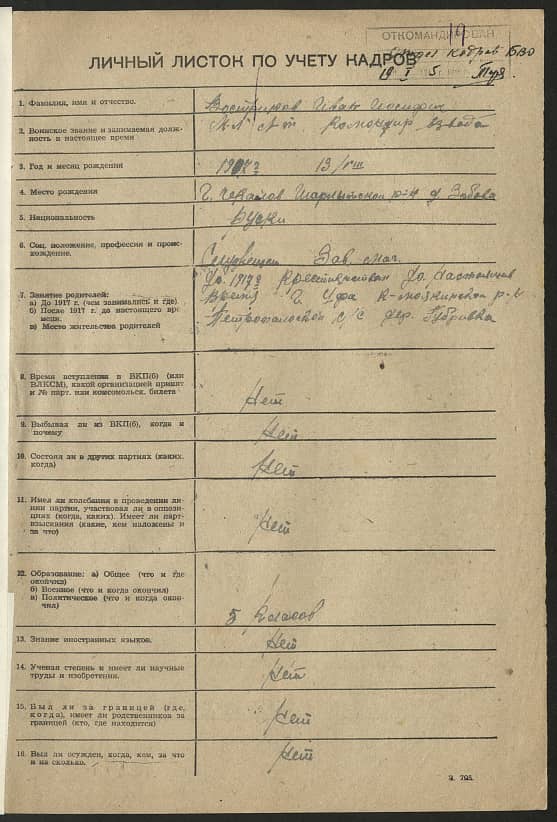 ОТКОМАНДИРОВАН
19
Отдел Кадров БВО
19 I 5
ЛИЧНЫЙ ЛИСТОК ПО УЧЕТУ КАДРОВ
1. Фамилия, имя и отчество.
Востриков Иван Иосифович
2. Воинское звание и занимаемая долж-
ность в настоящее время
Мл. л-т. Командир взвода
3. Год и месяц рождения
13/VIII
4. Место рождения
Г. Чкалов Шарлыкской р-н д.
5. Национальность
Руский
6. Соц. положение, профессия и проис-
хождение.
Служащий Зав. маг.
7. Занятие родителей:
а) До 1917 г. (чем занимались и где)
б) После 1917 г. до настоящего вре
мени.
в) Место жительства родителей
До 1917 г Крестьянствои До. настоящее
время Г. Уфа р-н
с/с дер. Дубровка
8. Время вступления в ВКП(б) (или
ВЛКСМ), какой организацией принят
и № парт. или комсомольск. билета
Нет
9. Выбывал ли из ВКП(б), когда и
почему
Нет
10. Состоял ли в других партиях (каких,
когда)
Нет
11. Имел ли колебания в проведении ли-
нии партии, участвовал ли в оппози-
циях (когда, каких). Имеет ли парт-
взыскания (какие, кем наложены и
за что)
Нет
12. Образование: а) Общее (что и где
окончил)
б) Военное (что и когда окончил)
в) Политическое (что и когда окон-
чил)
5 классов
13. Знание иностранных языков.
Нет
14. Ученая степень и имеет ли научные
труды и изобретения.
Нет
15. Был ли за границей (где,
когда), имеет ли родственников за
границей (кто, где находится)
Нет
16. Был ли осужден, когда, кем, за что
и на сколько.
Нет
З. 795.